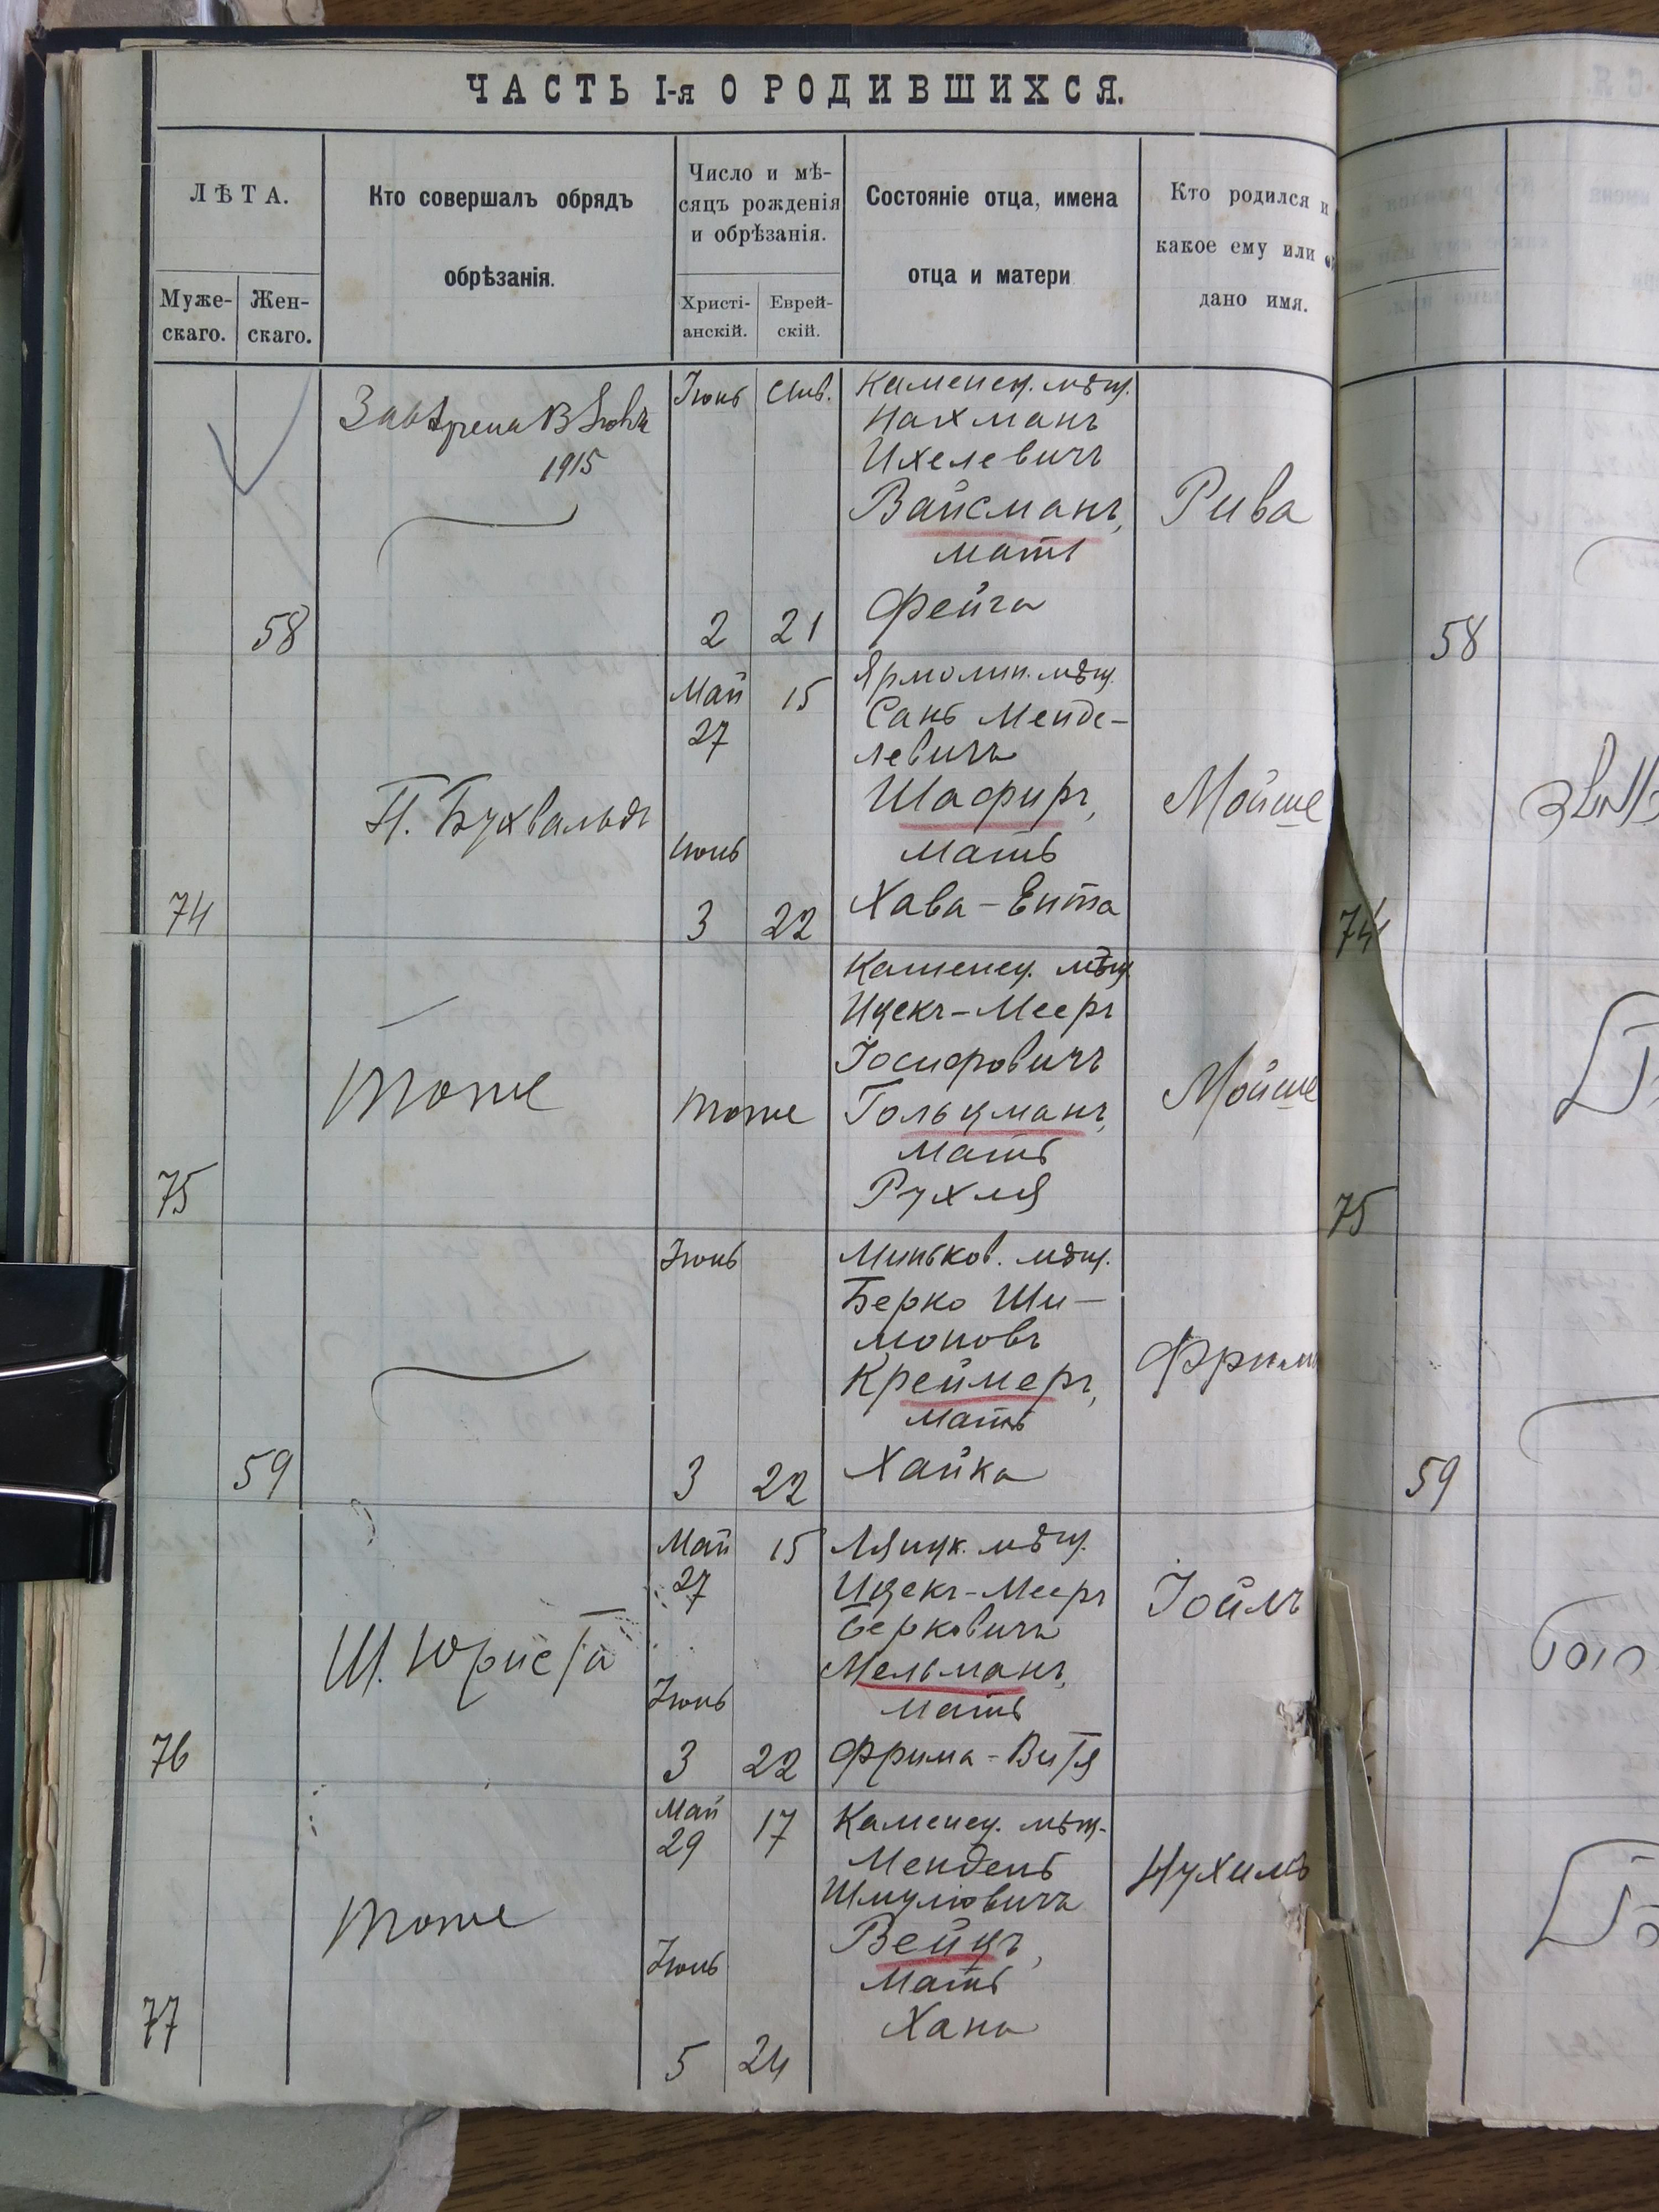 ЧАСТЬ I-я О РОДИВШИХСЯ.
ЛѢТА.
Муже-
скаго.
Жен-
скаго.
Кто совершалъ обрядъ
обрѣзанія.
Число и мѣ-
сяцъ рожденія
и обрѣзанія.
Христі-
анскій.
Еврей-
скій.
Состояніе отца, имена
отца и матери
Кто родился и
какое ему или
дано имя.
58
1915
Іюнь Сив.
2 21
Каменец. мѣщ.
Нахманъ
Ихелевичъ
Вайсманъ,
мать
Фейга
Рива
58
74
П. Бухвальдъ
Май 15
27
Іюнь
3 22
Ярмолин. мѣщ.
Сань Менде-
левичъ
Шафиръ,
мать
Хава-Ента
Мойше
74
75
тоже
тоже
Каменец. мѣщ.
Ицекъ-Мееръ
Іосифовичъ
Гольцманъ,
мать
Рухля
Мойше
75
59
Іюнь
3 22
Миньков. мѣщ.
Берко Ши-
моновъ
Креймеръ,
мать
Хайка
59
76
Май 15
27
Іюнь
3 22
Ляцк. мѣщ.
Ицекъ-Мееръ
Берковичъ
Мельманъ,
мать
Фрима-Витя
Іойлъ
77
тоже
Май 17
29
Іюнь
5 24
Каменец. мѣщ.
Мендель
Шмулювичъ
Вейцъ,
мать
Хана
Нухимъ